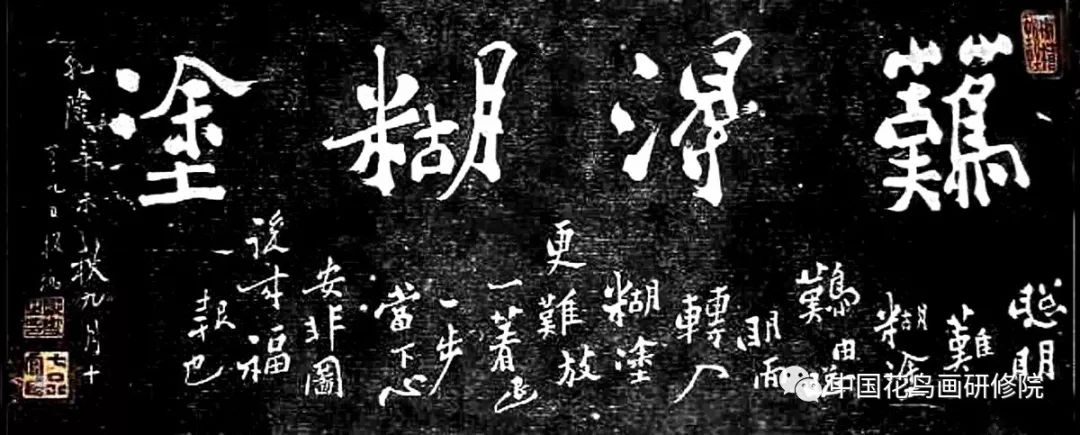 難得糊塗
聰明
難
糊塗
難由聰
明而
轉入
糊塗
更難放
一着退
一步
當下心
安非圖
後來福
報也
乾隆辛未秋九月十
有九日板橋
中国花鸟画研修院